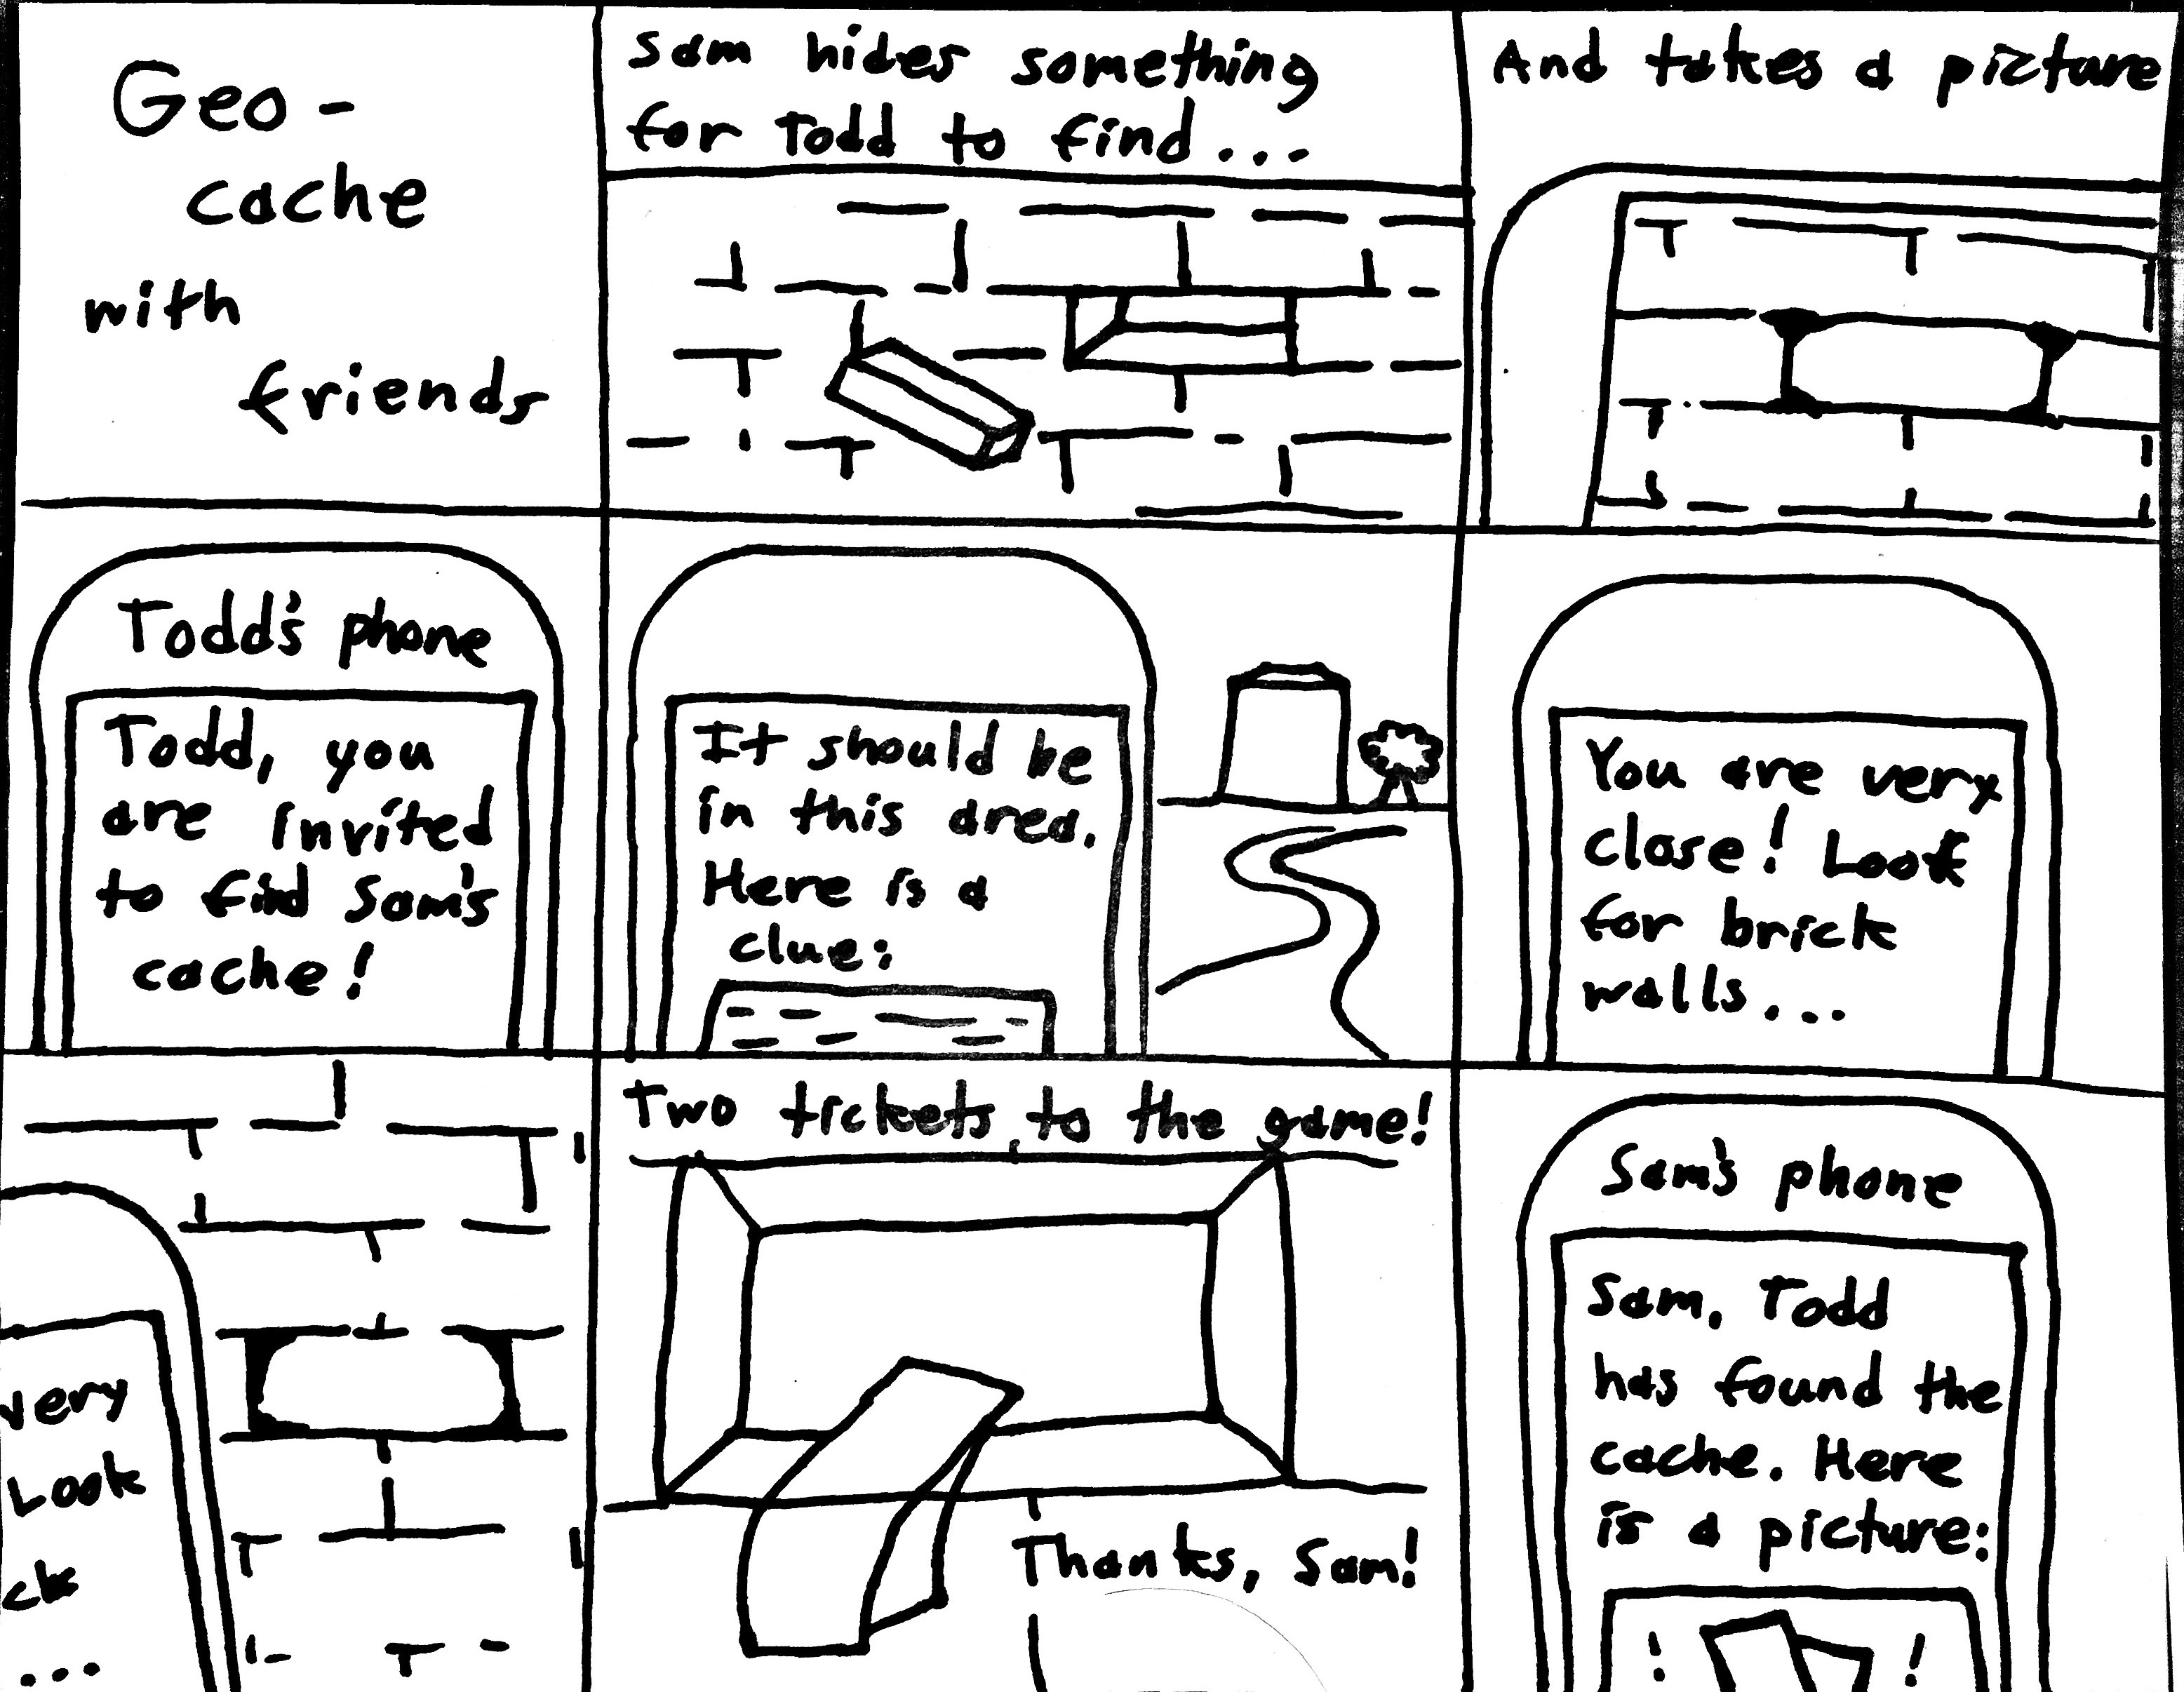 Geo-
cache
with
friends
Sam hides something
for Todd to find...
And takes a picture
Todd's phone
Todd, you
are invited
to find Sam's
cache!
It should be
in this area.
Here is a
clue:
You are very
close! Look
for brick
walls...
very
Look
ck
...
Two tickets to the game!
Thanks, Sam!
Sam's phone
Sam, Todd
has found the
cache. Here
is a picture:
! !